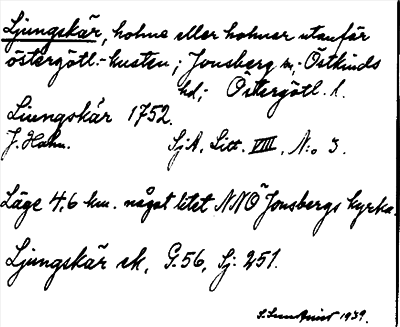 Ljungskär, holme eller holmar utanför
östergötl.-kusten; Jonsberg sn; Östkinds
hd; Östergötl. l.
Liungskär 1752.
J. Hahn. SjA, Litt. VIII, N:o 3.
Läge 4,6 km. något litet NNÖ Jonsbergs kyrka.
Ljungskär ek, G.56, Sj: 251.
1939.